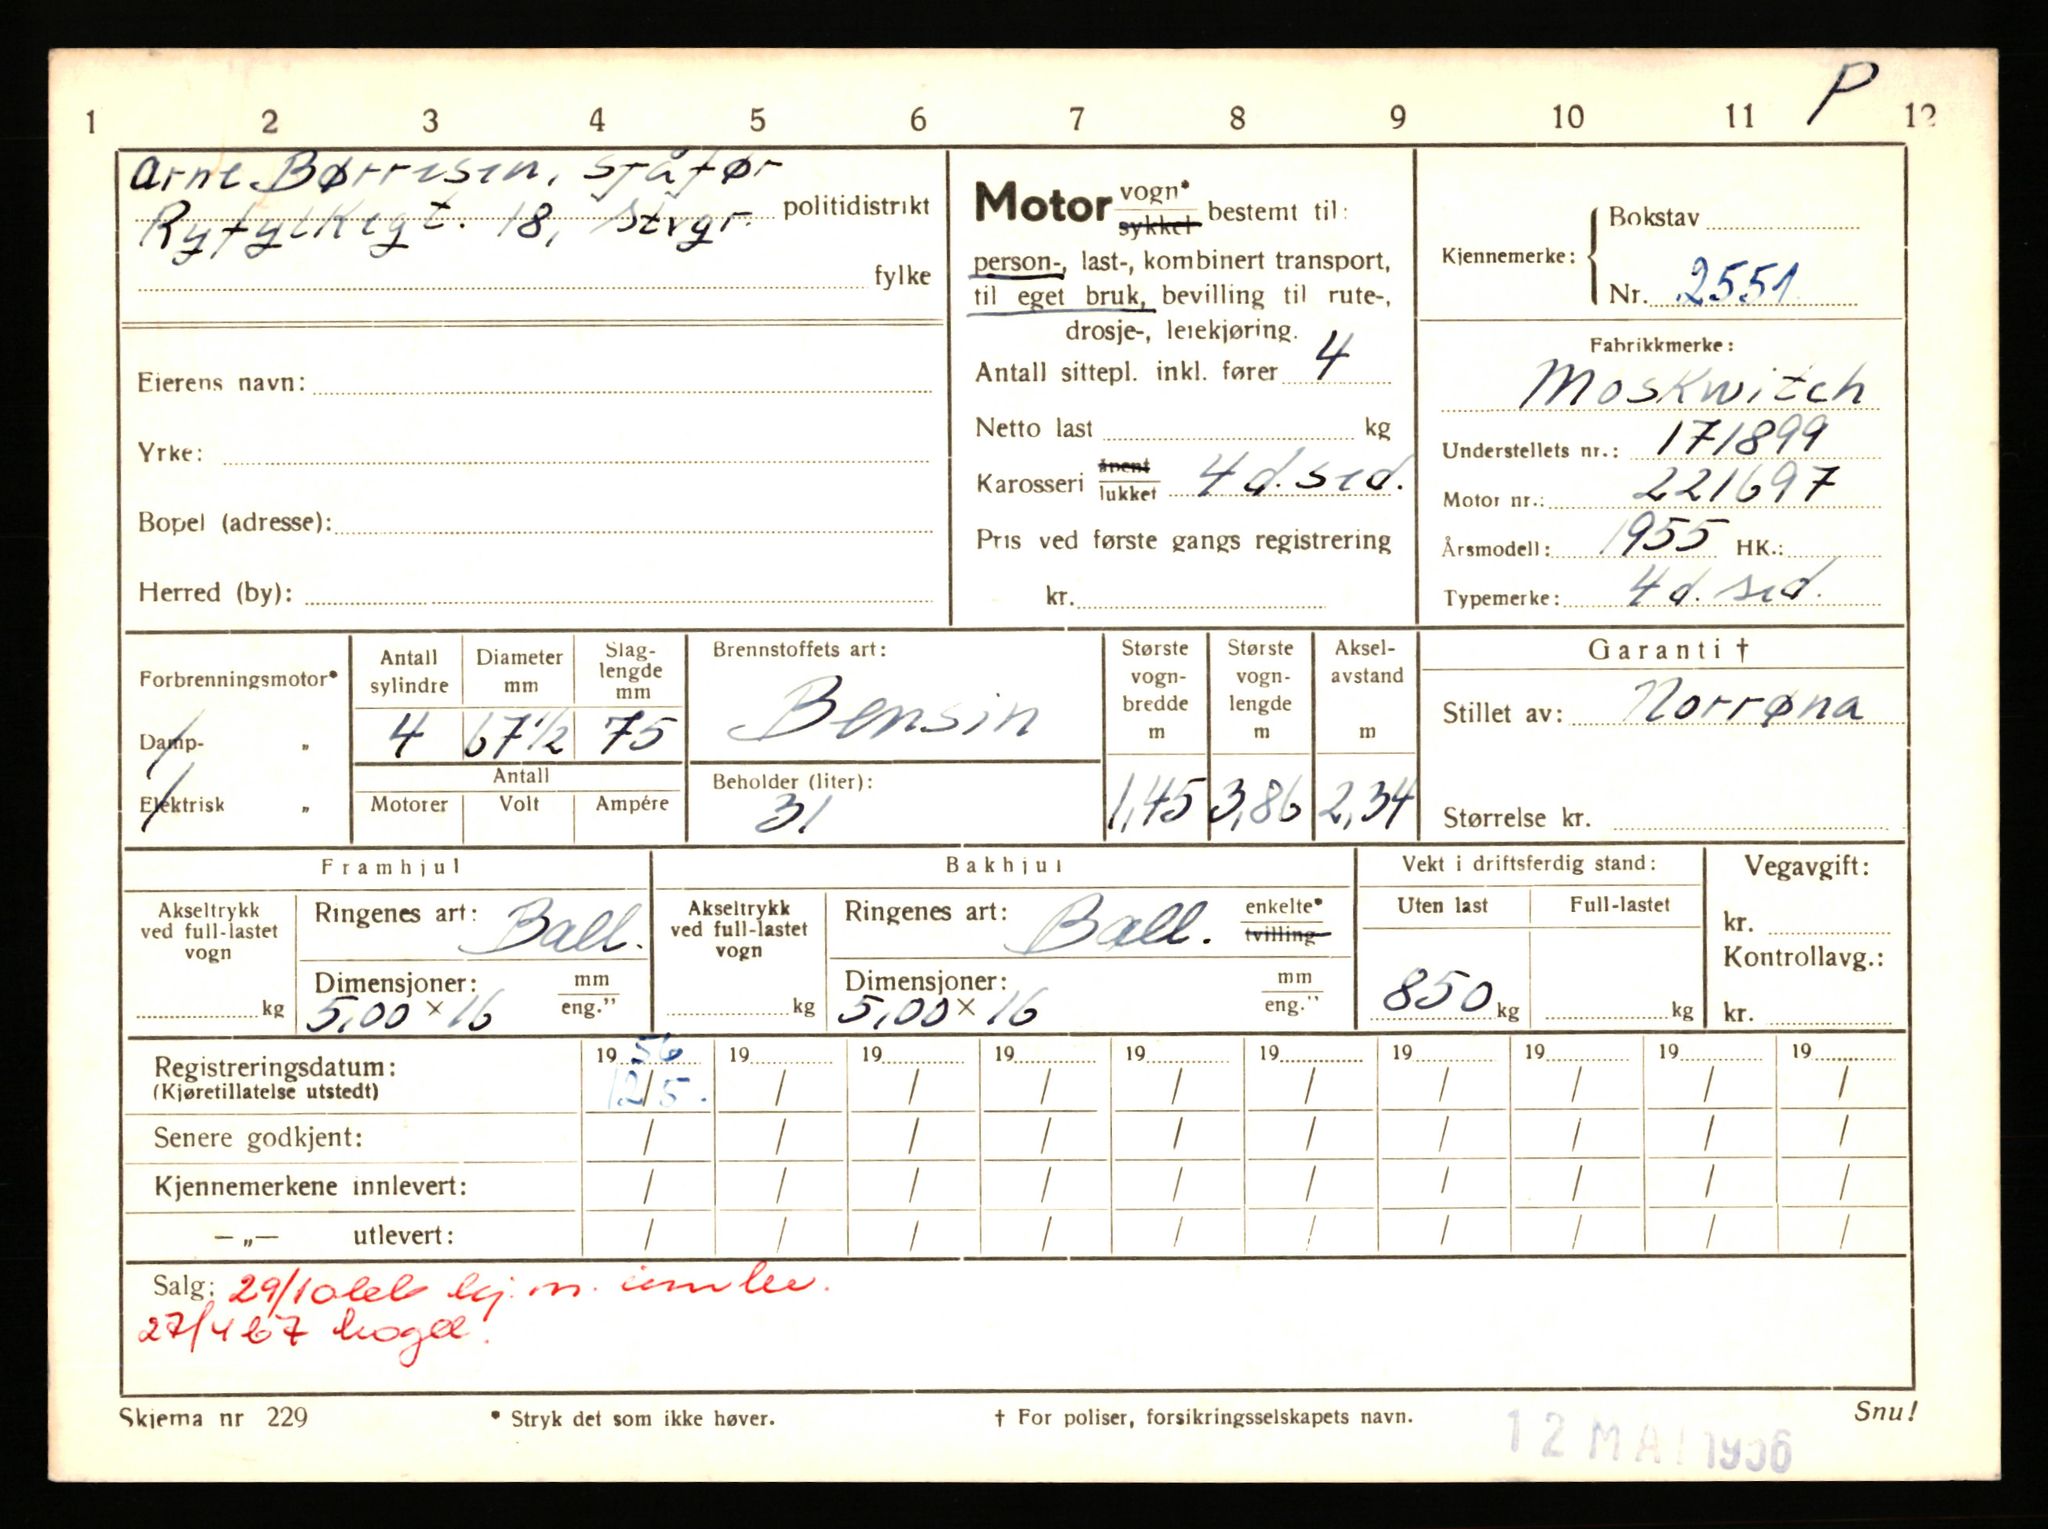 P
1 2 3 4 5 6 7 8 9 10 11 12
Arne Børresen, sjåfør
politidistrikt
Ryfylkegt. 18, Stvgr.
fylke
Eierens navn:
Yrke:
Bopel (adresse):
Herred (by):
Motor vogn* sykkel bestemt til:
person-, last-, kombinert transport,
til eget bruk, bevilling til rute-,
drosje-, leiekjøring.
Antall sittepl. inkl. fører 4
Netto last kg
Karosseri åpent lukket 4 d. sed.
Pris ved første gangs registrering
kr.
Kjennemerke: Bokstav
Nr. 2551
Fabrikkmerke:
Moskwitch
Understellets nr.: 171899
Motor nr.: 221697
Årsmodell: 1955 HK.:
Typemerke: 4 d. sed.
Forbrenningsmotor*
Damp- „
Elektrisk „
Antall sylindre Diameter mm Slag-lengde mm
4 67 1/2 75
Antall
Motorer Volt Ampére
Brennstoffets art:
Bensin
Beholder (liter):
31
Største vogn-bredde m Største vogn-lengde m Aksel-avstand m
1,45 3,86 2,34
Garanti †
Stillet av: Norrøna
Størrelse kr.
Framhjul
Akseltrykk ved full-lastet vogn
kg
Ringenes art: Ball.
Dimensjoner: mm eng."
5,00 × 16
Bakhjul
Akseltrykk ved full-lastet vogn
kg
Ringenes art: Ball. enkelte* tvilling
Dimensjoner: mm eng."
5,00 × 16
Vekt i driftsferdig stand:
Uten last Full-lastet
850 kg kg
Vegavgift:
kr.
Kontrollavg.:
kr.
Registreringsdatum: 19 56 19 19 19 19 19 19 19 19 19
(Kjøretillatelse utstedt) 12/5. / / / / / / / / /
Senere godkjent: / / / / / / / / / /
Kjennemerkene innlevert: / / / / / / / / / /
— „ — utlevert: / / / / / / / / / /
Salg: 29/10 kj. m.
27/4 67
Skjema nr 229 * Stryk det som ikke høver. † For poliser, forsikringsselskapets navn. Snu!
12 MAI 1956